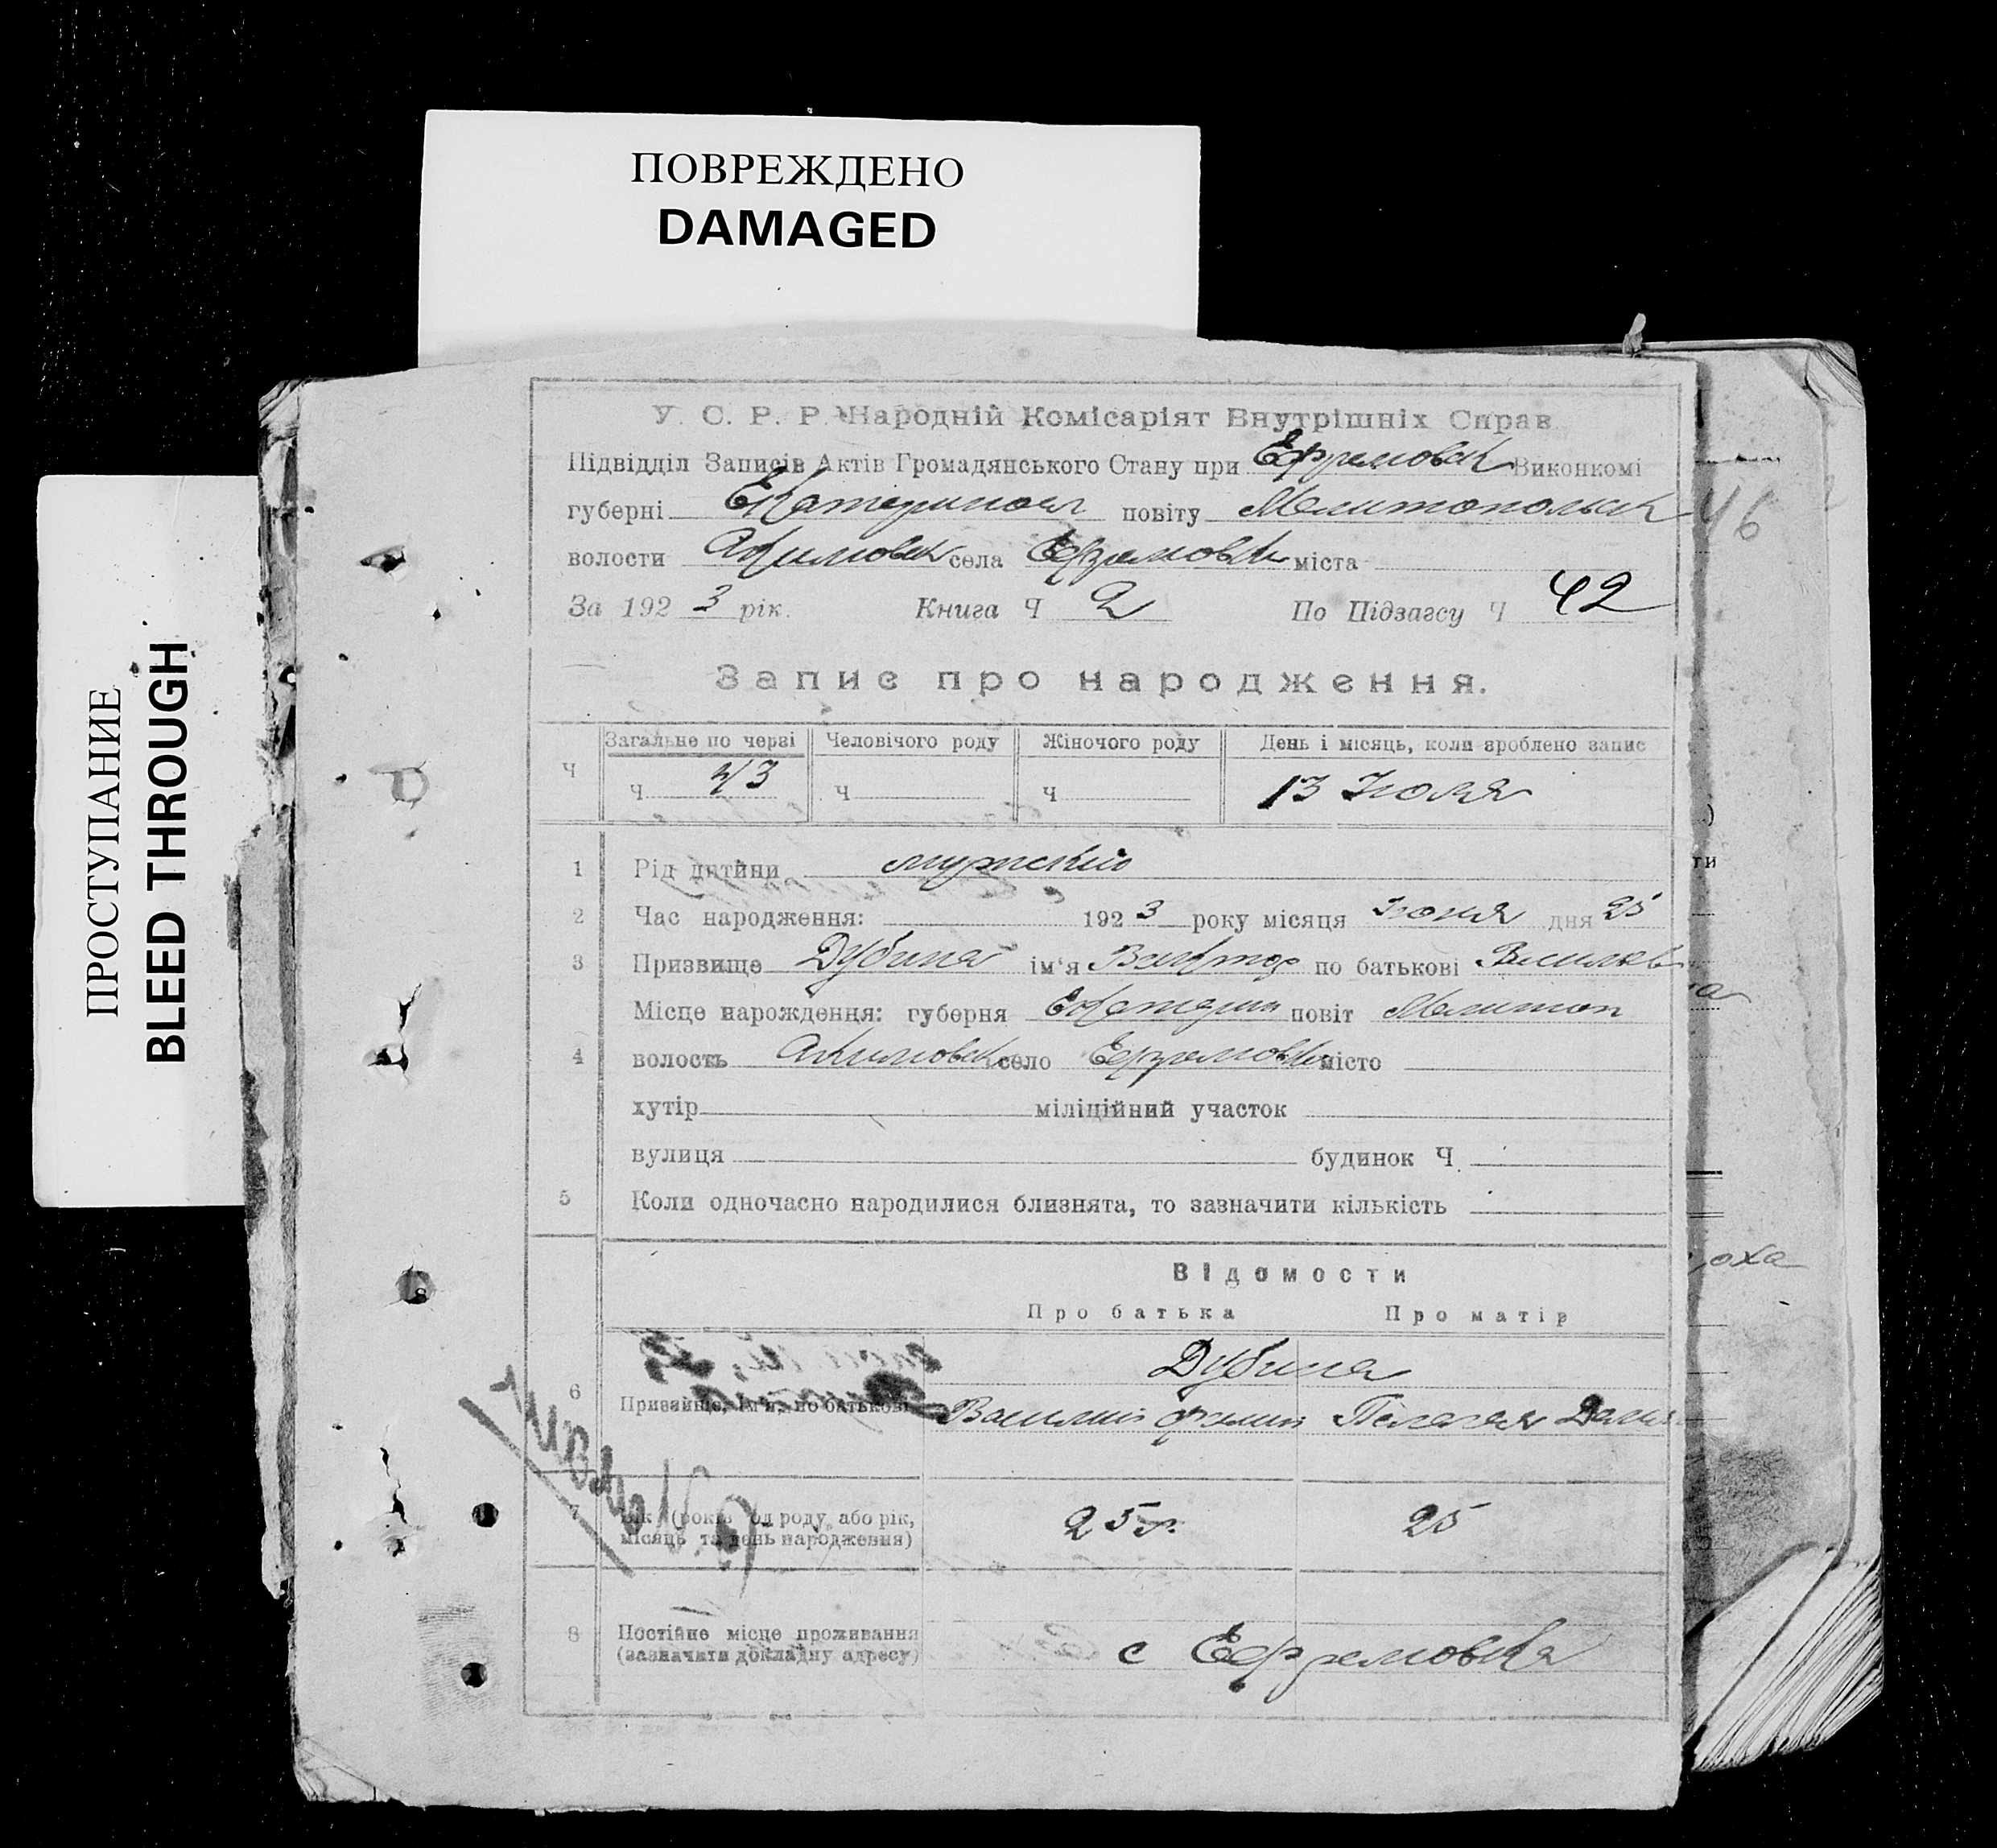 ПОВРЕЖДЕНО
DAMAGED
ПРОСТУПАНИЕ
BLEED THROUGH
У. С. Р. Р. Народній Комісаріят Внутрішніх Справ
Підвідділ Записів Актів Громадянського Стану при Ефремовск Виконкомі
губерні Екатеринослав повіту Мелитопольск
волости Акимовск села Ефремовки міста
За 192 3 рік. Книга Ч 2 По Підзагсу Ч 42
46
Запис про народження.
Загальне по черзі Человічого роду Жіночого роду День і місяць, коли зроблено запис
Ч Ч 43 Ч Ч 13 Июля
1 Рід дитини мужский
2 Час народження: 192 3 року місяця Июня дня 25
3 Призвище Дубина ім'я Виктор по батькові Васильев
Місце нарождення: губерня Екатерин повіт Мелитоп
4 волость Акимовск село Ефремовка місто
хутір міліційний участок
вулиця будинок Ч.
5 Коли одночасно народилися близнята, то зазначити кількість
Відомости
Про батька Про матір
Дубина
6 Призвище, ім'я, по батькові Василий Пелагея
7 Вік (років од роду, або рік, 25 г. 25
місяць та день народження)
8 Постійне місце проживання с Ефремовка
(зазначити докладну адресу)